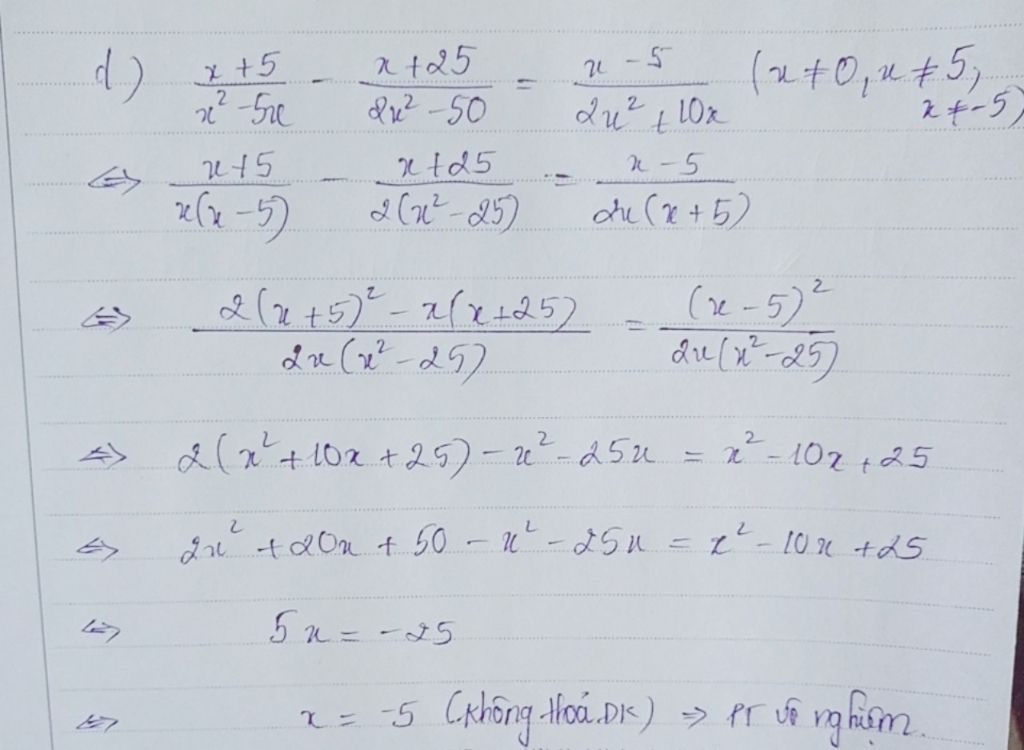 d) (x+5)/(x² - 5x) - (x+25)/(2x² - 50) = (x-5)/(2x² + 10x) (x ≠ 0, x ≠ 5, x ≠ -5)
⇔ (x+5)/(x(x-5)) - (x+25)/(2(x² - 25)) = (x-5)/(2x(x+5))
⇔ (2(x+5)² - x(x+25))/(2x(x² - 25)) = (x-5)²/(2x(x² - 25))
⇔ 2(x² + 10x + 25) - x² - 25x = x² - 10x + 25
⇔ 2x² + 20x + 50 - x² - 25x = x² - 10x + 25
⇔ 5x = -25
⇔ x = -5 (không thoả ĐK) ⇒ PT vô nghiệm.